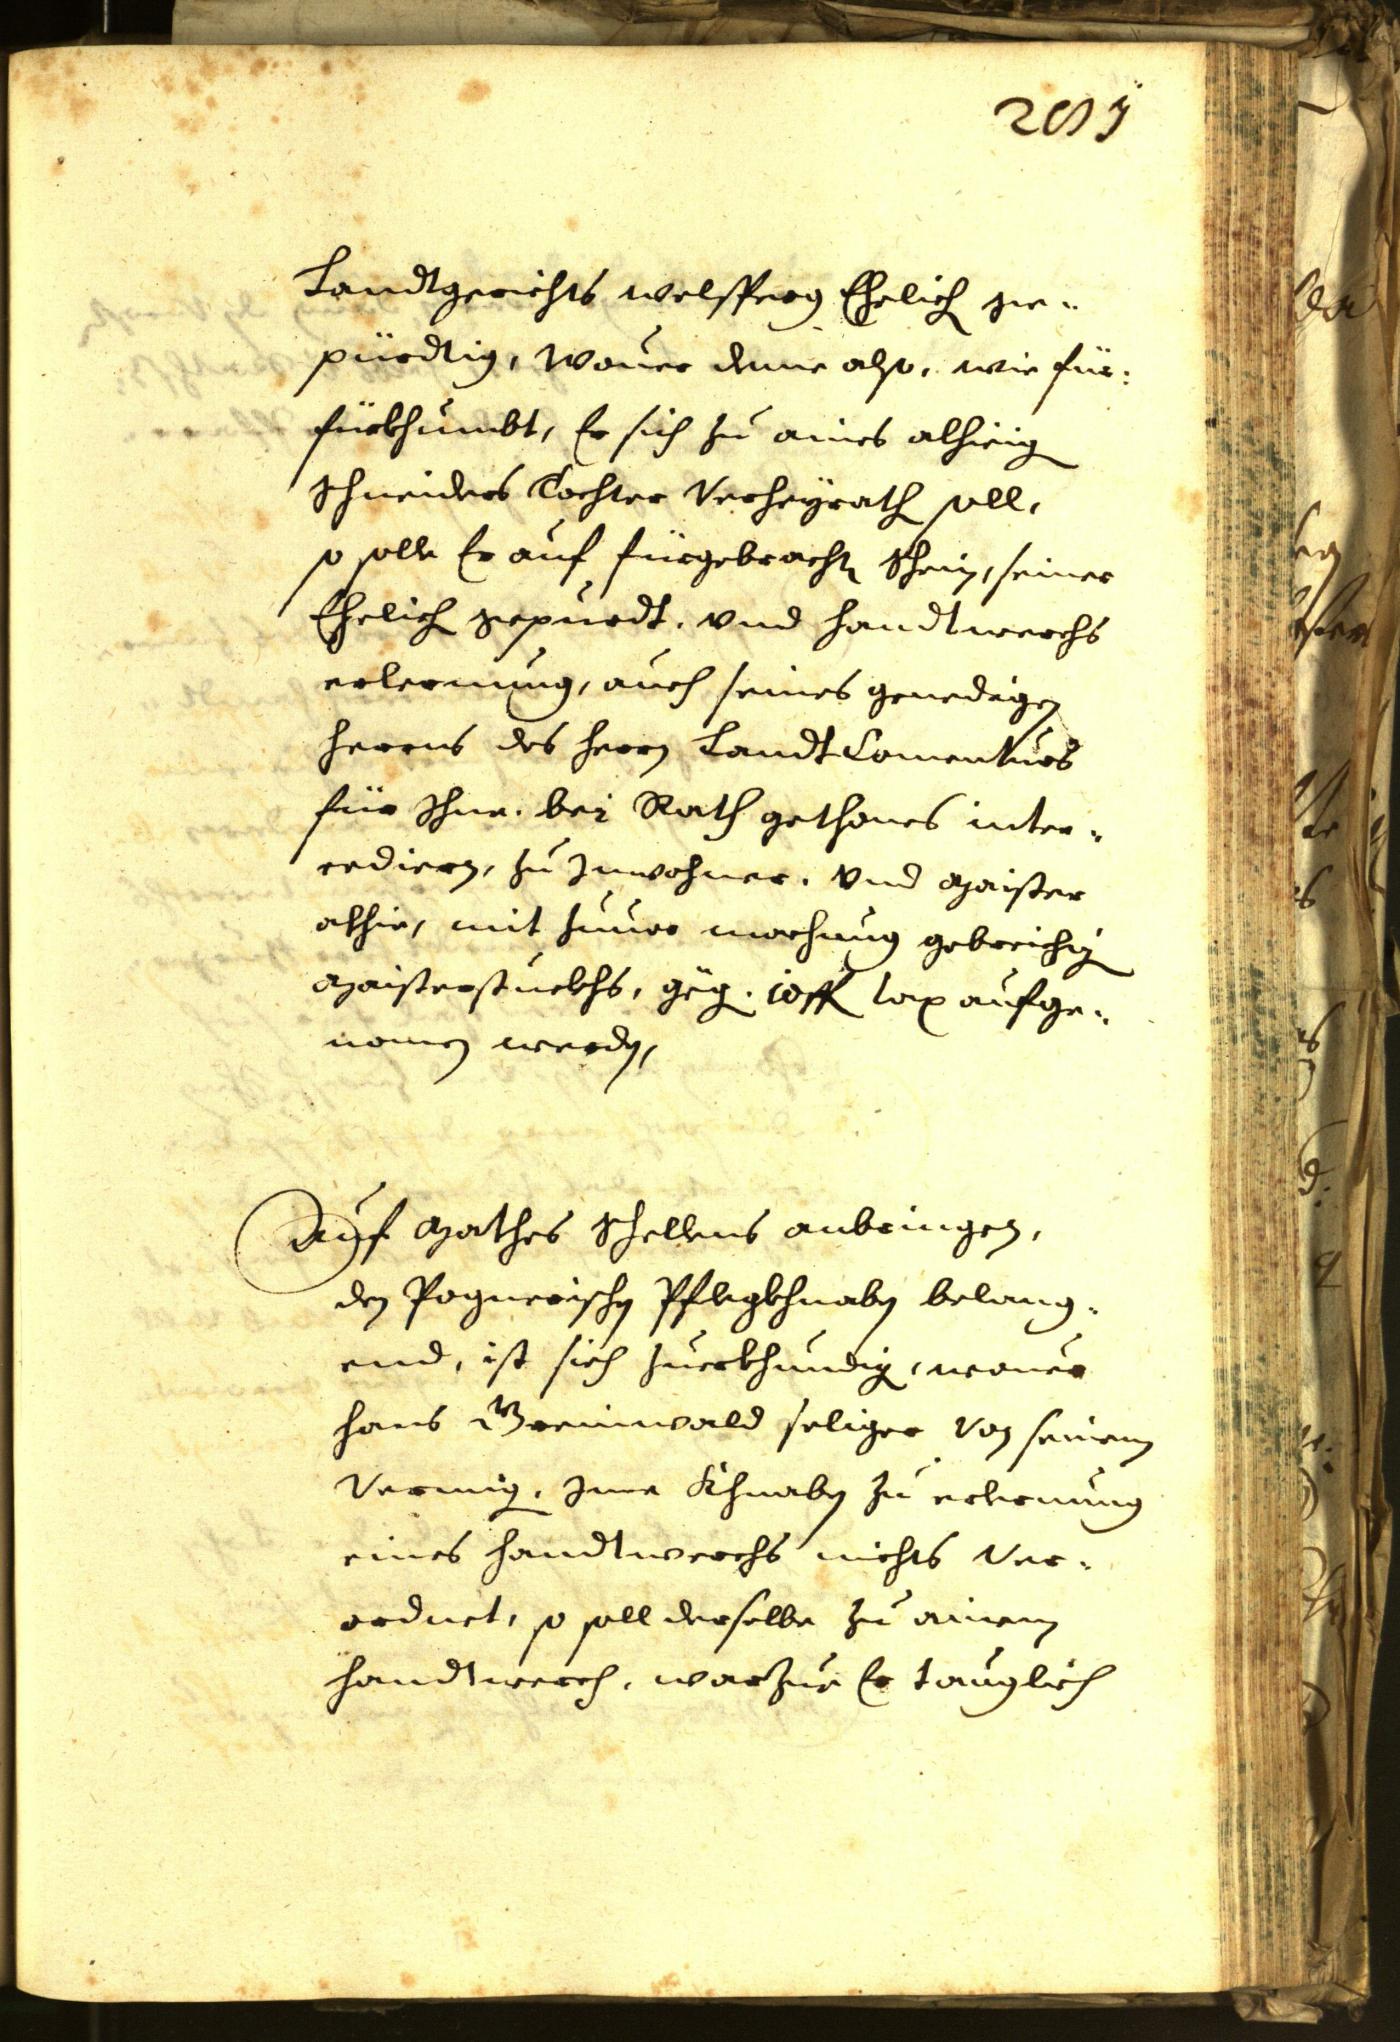 Landtgerichts welssperg Ehelich ge-
pürdtig, Wouer deme also, wie für-
fürkhumbt, Er sich zu aines alhieig
Schneiders Tochter Verheÿrath soll,
so solle Er auf fürgebracht Schein, seiner
Ehelich gepurdt. vnd handtwerchs
erlernung, auch seines genedigen
herrns des herrn LandtComenturs
für Ihne. bei Rath gethones inter-
cediern, zu Inwohner. Vnd Maister
alhie, mit zuuor machung gebreichig
Maisterstuckhs, geg. tax aufge-
nomen werdn,
Auf Mathes Schellens anbringen,
den Pognerischn Pflegkhnabn belang-
end, ist sich zuerkhundig, wouer
hans Greinwald seliger Von seinem
Vermig. Ime Khnabn zu erlernung
eines handtwerchs nichts Ver-
ordnet, so soll derselbe zu ainem
handtwerch, warzue Er tauglich